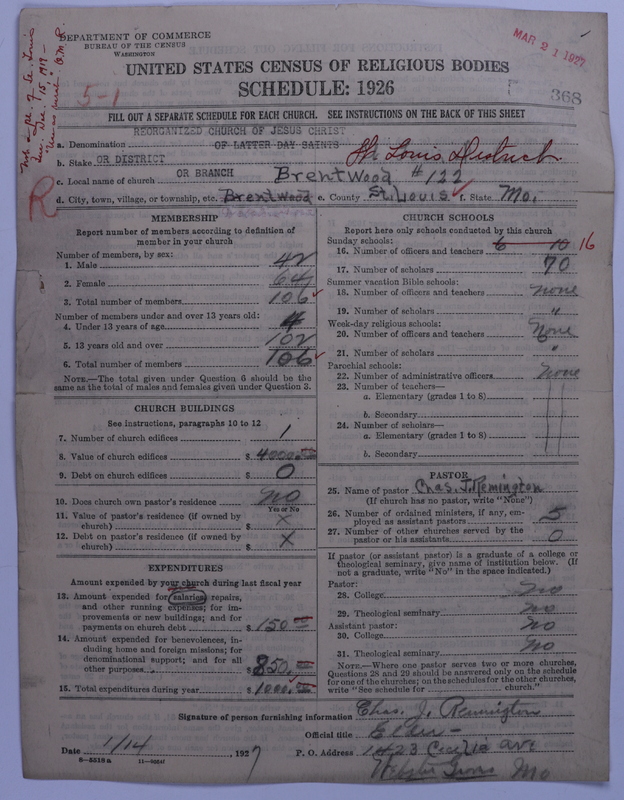 DEPARTMENT OF COMMERCE
BUREAU OF THE CENSUS
WASHINGTON
MAR 21 1927
UNITED STATES CENSUS OF RELIGIOUS BODIES
SCHEDULE: 1926
5-1
368
FILL OUT A SEPARATE SCHEDULE FOR EACH CHURCH. SEE INSTRUCTIONS ON THE BACK OF THIS SHEET
REORGANIZED CHURCH OF JESUS CHRIST
a. Denomination OF LATTER DAY SAINTS
b. Stake OR DISTRICT St. Louis District
c. Local name of church OR BRANCH Brentwood #122
R
d. City, town, village, or township, etc. Brentwood e. County St. Louis f. State Mo.
MEMBERSHIP
Report number of members according to definition of
member in your church
Number of members, by sex:
1. Male 42
2. Female 64
3. Total number of members 106
Number of members under and over 13 years old:
4. Under 13 years of age 4
5. 13 years old and over 102
6. Total number of members 106
NOTE.—The total given under Question 6 should be
same as the total of males and females given under Question 3.
CHURCH BUILDINGS
See instructions, paragraphs 10 to 12
7. Number of church edifices 1
8. Value of church edifices $ 4000.00
9. Debt on church edifices $ 0
10. Does church own pastor's residence No
Yes or No
11. Value of pastor's residence (if owned by
church) $ X
12. Debt on pastor's residence (if owned by
church) $ X
EXPENDITURES
Amount expended by your church during last fiscal year
13. Amount expended for salaries, repairs,
and other running expenses; for im-
provements or new buildings; and for
payments on church debt $ 150.00
14. Amount expended for benevolences, in-
cluding home and foreign missions; for
denominational support; and for all
other purposes $ 850.00
15. Total expenditures during year $ 1000.00
CHURCH SCHOOLS
Report here only schools conducted by this church
Sunday schools:
16. Number of officers and teachers 6 10 16
17. Number of scholars 70
Summer vacation Bible schools:
18. Number of officers and teachers none
19. Number of scholars "
Week-day religious schools:
20. Number of officers and teachers None
21. Number of scholars "
Parochial schools:
22. Number of administrative officers None
23. Number of teachers—
a. Elementary (grades 1 to 8)
b. Secondary
24. Number of scholars—
a. Elementary (grades 1 to 8)
b. Secondary
PASTOR
25. Name of pastor Chas. J. Remington
(If church has no pastor, write "None")
26. Number of ordained ministers, if any, em-
ployed as assistant pastors 5
27. Number of other churches served by the
pastor or his assistants 0
If pastor (or assistant pastor) is a graduate of a college or
theological seminary, give name of institution below. (If
not a graduate, write "No" in the space indicated.)
Pastor:
28. College No
29. Theological seminary No
Assistant pastor: No
30. College
31. Theological seminary No
NOTE.—Where one pastor serves two or more churches,
Questions 28 and 29 should be answered only on the schedule
for one of the churches; on the schedules for the other churches,
write "See schedule for church."
Signature of person furnishing information Chas. J. Remington
Official title Elder
Date 1/14 1927 P. O. Address 1423 Cecelia ave
8-5518a
Webster Groves Mo